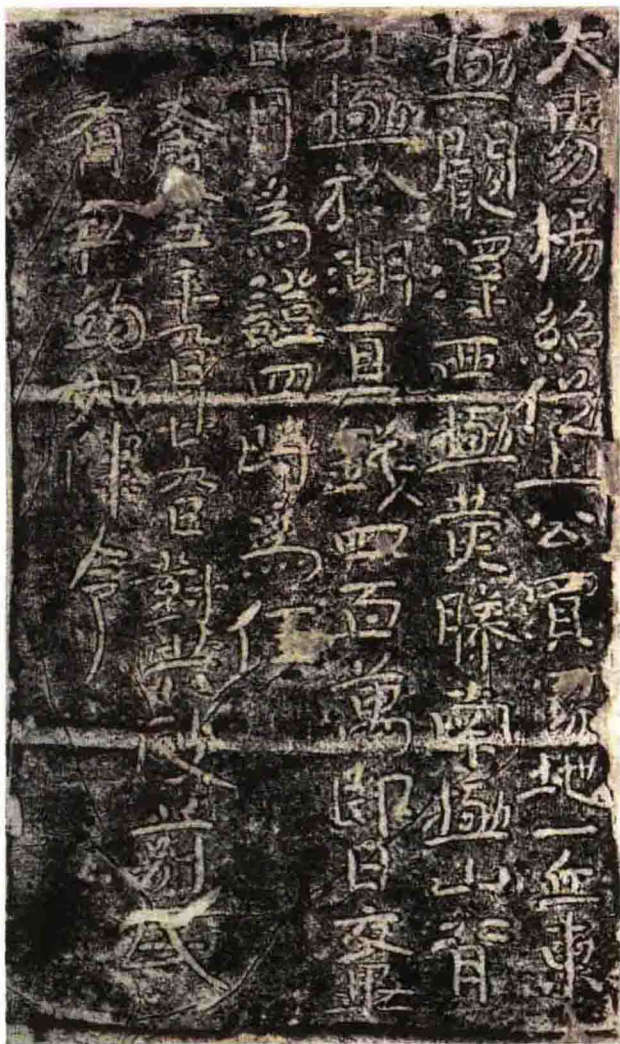 大男楊紹從土公買冢地一丘東
極闞澤西極黃滕南極山背
北極於湖直錢四百萬即日交畢
日月爲證四時爲任
太康五年九月廿九日對共破莂民
有私約如律令